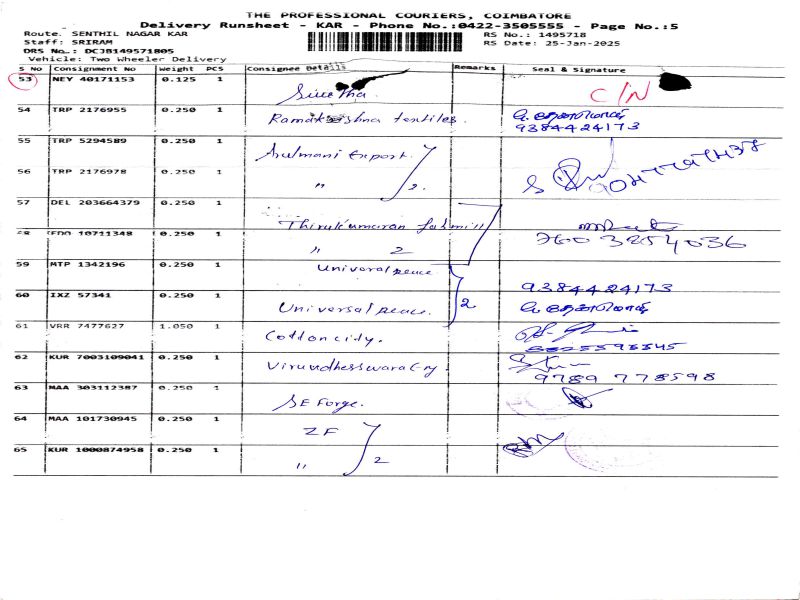 THE PROFESSIONAL COURIERS, COIMBATORE
Delivery Runsheet - KAR - Phone No.:0422-3505555 - Page No.:5
Route. SENTHIL NAGAR KAR RS No.: 1495718
Staff: SRIRAM RS Date: 25-Jan-2025
DRS No.: DCJB149571805
Vehicle: Two Wheeler Delivery
S No Consignment No Weight PCS Consignee Details Remarks Seal & Signature
53 NEY 40171153 0.125 1 C/N
54 TRP 2176955 0.250 1 Ramakrishna textiles. 9384424173
55 TRP 5294589 0.250 1 Arulmani Export.
56 TRP 2176978 0.250 1 " 2.
57 DEL 203664379 0.250 1 Thirukumaran
58 EDO 10711348 0.250 1 " 2 760 3254036
59 MTP 1342196 0.250 1 Univeral peace 9384424173
60 IXZ 57341 0.250 1 Universal peace. 2
61 VRR 7477627 1.050 1 Cotton city.
62 KUR 7003109041 0.250 1 9789 778598
63 MAA 303112387 0.250 1 SE Forge.
64 MAA 101730945 0.250 1 ZF
65 KUR 1000874958 0.250 1 " 2